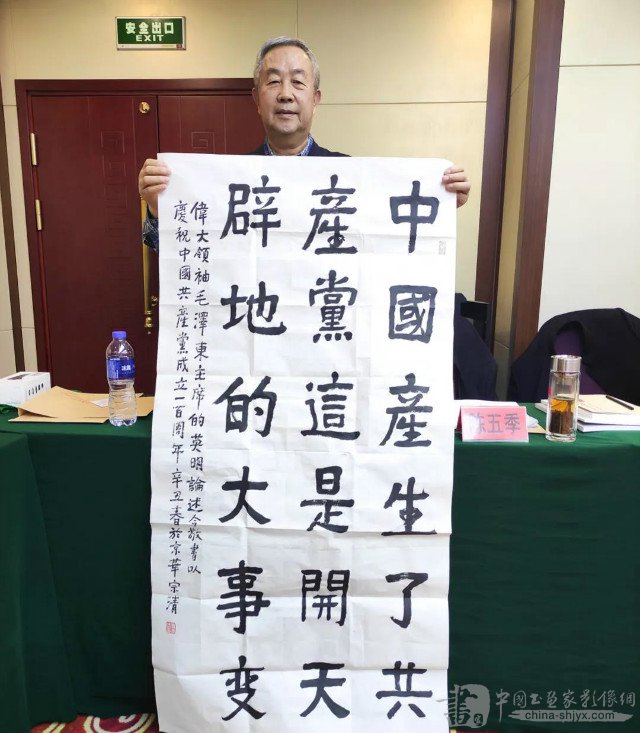 安全出口
EXIT
中國產生了共
產黨這是開天
辟地的大事变
偉大領袖毛澤東主席的英明論述今敬書以
慶祝中國共產黨成立一百周年辛丑春於京華宗清
陈五季
中国书画家影像網
china-shjyx.com